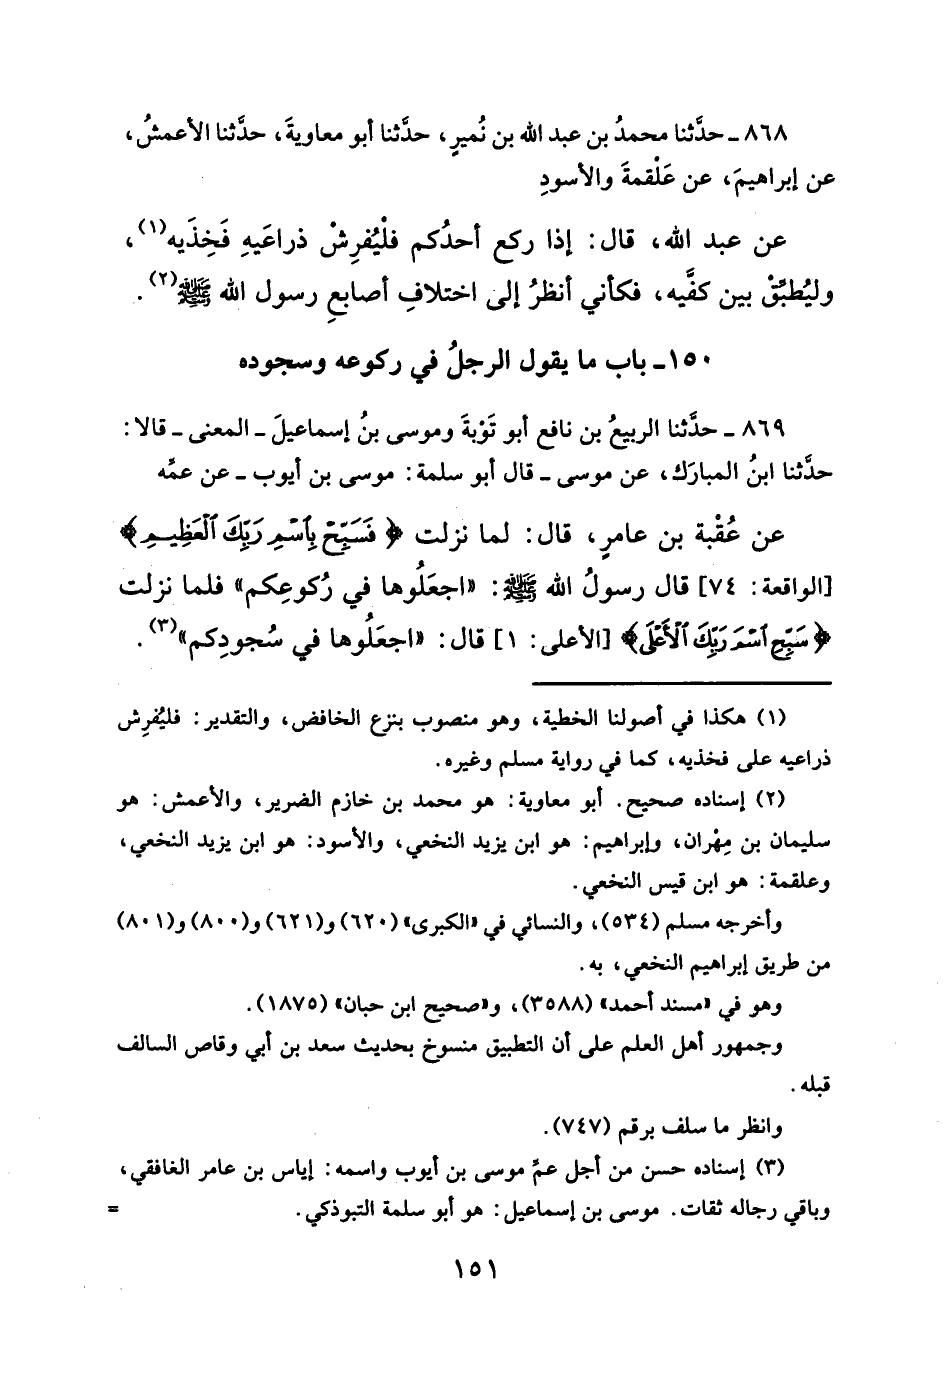 ٨٦٨ ـ حدَّثنا محمدُ بن عبد الله بن نُميرٍ، حدَّثنا أبو معاويةَ، حدَّثنا الأعمشُ،
عن إبراهيمَ، عن عَلْقمةَ والأسودِ
عن عبد الله، قال: إذا ركع أحدُكم فلْيُفرِشْ ذراعَيهِ فَخِذَيه(١)،
وليُطبِّقْ بين كفَّيه، فكأني أنظرُ إلى اختلافِ أصابعِ رسول الله ﷺ(٢).
١٥٠ ـ باب ما يقول الرجلُ في ركوعه وسجوده
٨٦٩ ـ حدَّثنا الربيعُ بن نافع أبو تَوْبةَ وموسى بنُ إسماعيلَ ـ المعنى ـ قالا:
حدَّثنا ابنُ المبارَك، عن موسى ـ قال أبو سلمة: موسى بن أيوب ـ عن عمِّه
عن عُقْبة بن عامرٍ، قال: لما نزلت ﴿فَسَبِّحْ بِٱسْمِ رَبِّكَ ٱلْعَظِيمِ﴾
[الواقعة: ٧٤] قال رسولُ الله ﷺ: «اجعَلُوها في رُكوعِكم» فلما نزلت
﴿سَبِّحِ ٱسْمَ رَبِّكَ ٱلْأَعْلَى﴾ [الأعلى: ١] قال: «اجعَلُوها في سُجودِكم»(٣).
(١) هكذا في أصولنا الخطية، وهو منصوب بنزع الخافض، والتقدير: فليُفرِش
ذراعيه على فخذيه، كما في رواية مسلم وغيره.
(٢) إسناده صحيح. أبو معاوية: هو محمد بن خازم الضرير، والأعمش: هو
سليمان بن مِهْران، وإبراهيم: هو ابن يزيد النخعي، والأسود: هو ابن يزيد النخعي،
وعلقمة: هو ابن قيس النخعي.
وأخرجه مسلم (٥٣٤)، والنسائي في «الكبرى» (٦٢٠) و(٦٢١) و(٨٠٠) و(٨٠١)
من طريق إبراهيم النخعي، به.
وهو في «مسند أحمد» (٣٥٨٨)، و«صحيح ابن حبان» (١٨٧٥).
وجمهور أهل العلم على أن التطبيق منسوخ بحديث سعد بن أبي وقاص السالف
قبله.
وانظر ما سلف برقم (٧٤٧).
(٣) إسناده حسن من أجل عمِّ موسى بن أيوب واسمه: إياس بن عامر الغافقي،
وباقي رجاله ثقات. موسى بن إسماعيل: هو أبو سلمة التبوذكي. =
١٥١